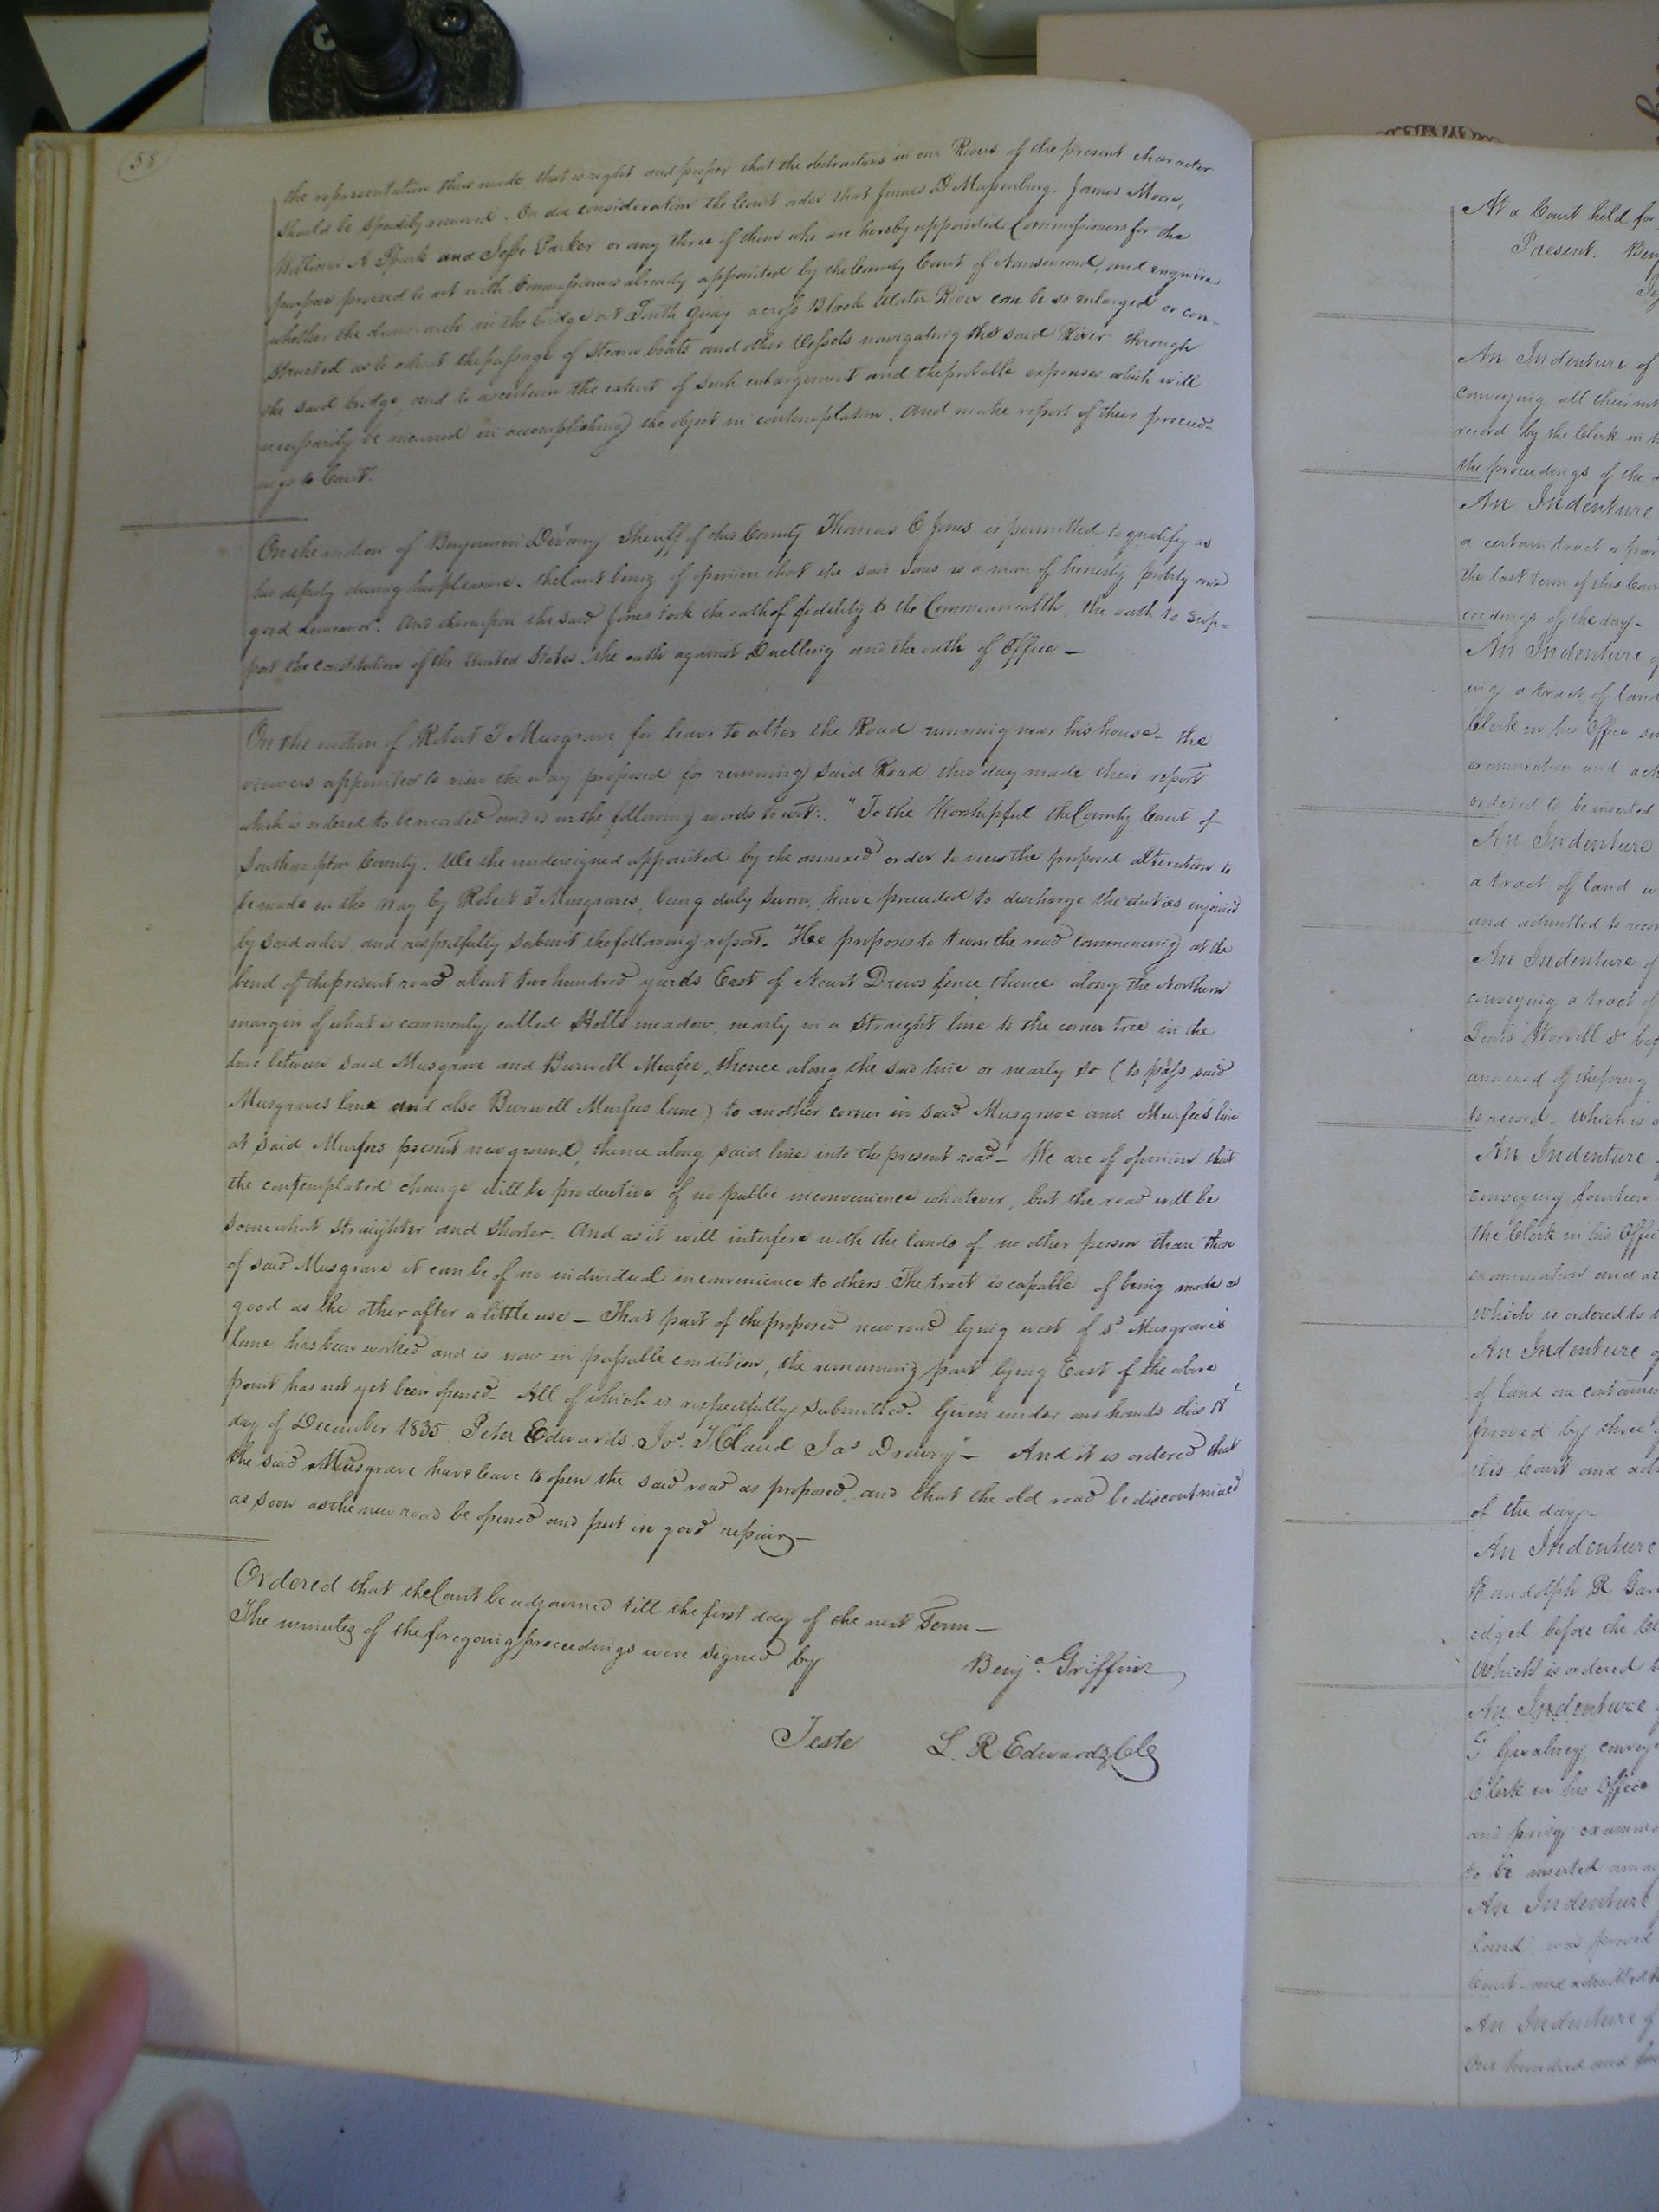 58
the representation thus made, that is right and proper that the obstructions in our Rivers of the present character
should be speedily removed. On due consideration the Court order that James D Massenburg, James Moore,
William A Spark and Jesse Parker or any three of them who are hereby appointed Commissioners for the
purpose proceed to act with Commissioners already appointed by the County Court of Nansemond, and enquire
whether the draw arch in the bridge at South Quay across Black Water River can be so enlarged or con-
structed as to admit the passage of Steam boats and other Vessels navigating the said River through
the said bridge, and to ascertain the extent of such enlargement and the probable expenses which will
necessarily be incurred in accomplishing the object in contemplation. And make report of their proceed-
ings to Court.
On the motion of Benjamin Devany Sheriff of this County Thomas C Jones is permitted to qualify as
his deputy during his pleasure. the Court being of opinion that the said Jones is a man of honesty probity and
good demeanor. And thereupon the said Jones took the oath of fidelity to the Commonwealth, the oath to sup-
port the constitution of the United States, the oath against Duelling and the oath of Office -
On the motion of Robert T Musgrave for leave to alter the Road running near his house - the
viewers appointed to view the way proposed for running said Road this day made their report
which is ordered to be recorded and is in the following words to wit: "To the Worshipful the County Court of
Southampton County. We the undersigned appointed by the annexed order to view the proposed alteration to
be made in the way by Robert T Musgraves, being duly sworn, have proceeded to discharge the duties enjoined
by said order, and respectfully submit the following report. Hee proposes to turn the road commencing at the
bend of the present road about two hundred yards East of Newit Drews fence thence along the Northern
margin of what is commonly called Holts meadow, nearly in a straight line to the corner tree in the
line between said Musgrave and Burwell Murfee, thence along the said line or nearly so (to pass said
Musgraves lane and also Burwell Murfees lane) to another corner in said Musgrave and Murfee's line
at said Murfees present new ground, thence along said line into the present road - We are of opinion that
the contemplated change will be productive of no public inconvenience whatever, but the road will be
somewhat straighter and shorter. And as it will interfere with the lands of no other person than those
of said Musgrave it can be of no individual inconvenience to others. The tract is capable of being made as
good as the other after a little use - That part of the proposed new road lying west of sd. Musgrave's
lane has been worked and is now in passable condition, the remaining part lying East of the above
point has not yet been opened - All of which is respectfully submitted. Given under our hands this 18th
day of December 1835. Peter Edwards. Jos. Holland Jas Drewry" - And it is ordered that
the said Musgrave have leave to open the said road as proposed, and that the old road be discontinued
as soon as the new road be opened and put in good repair -
Ordered that the Court be adjourned till the first day of the next Term -
The minutes of the foregoing proceedings were signed by
Benja. Griffin
Teste L. R Edwards, Clk
At a Court held for
Present. Benj
An Indenture of
conveying all their
record by the Clerk in
the proceedings of the
An Indenture
a certain tract or
the last term of this Court
ceedings of the day -
An Indenture
ing a tract of land
Clerk in his Office
examination and
ordered to be inserted
An Indenture
a tract of land
and admitted to
An Indenture of
conveying a tract of
Lewis Worrell Sr.
annexed of the privy
to record - which is
An Indenture
conveying fourteen
the Clerk in his Office
examination and
which is ordered to
An Indenture
of land one
proved by three
this Court and
of the day -
An Indenture
Randolph R
edged before the
which is ordered
An Indenture
T Gwaltney, convey
Clerk in his Office
and privy
to be inserted
An Indenture
land was proved
Court and admitted
An Indenture of
one hundred and